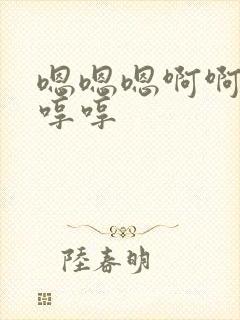 嗯嗯嗯啊啊
哼哼
陸春明